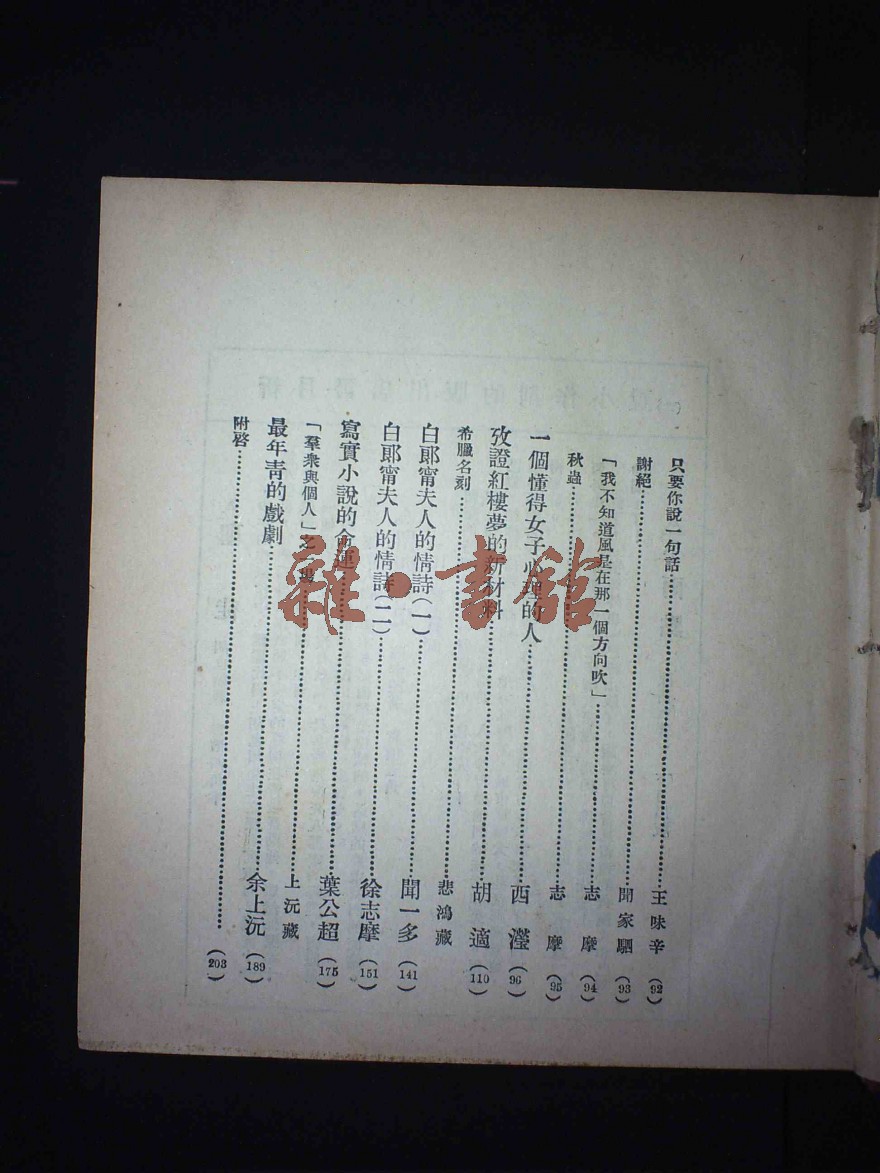 只要你說一句話……王味辛(92)
謝絕……聞家駟(93)
「我不知道風是在那一個方向吹」……志摩(94)
秋蟲……志摩(95)
一個懂得女子心理的人……西瀅(96)
攷證紅樓夢的新材料……胡適(110)
希臘名刻……悲鴻藏
白郎甯夫人的情詩(一)……聞一多(141)
白郎甯夫人的情詩(二)……徐志摩(151)
寫實小說的命運……葉公超(175)
「羣衆與個人」之一場……上沅藏
最年青的戲劇……余上沅(189)
附啓……(203)
雜·書館